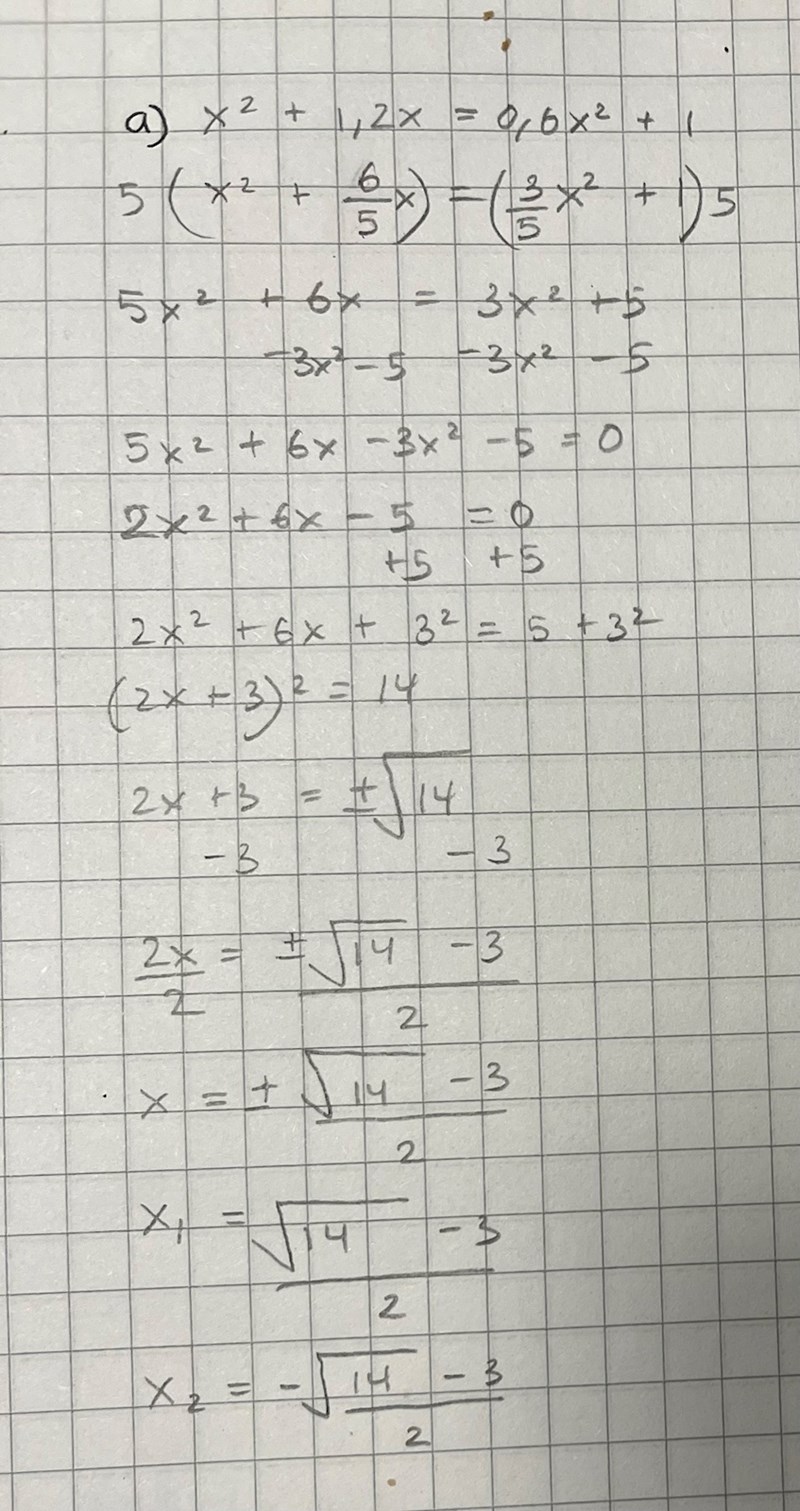 a) x² + 1,2x = 0,6x² + 1
5 ( x² + 6/5 x ) = ( 3/5 x² + 1 ) 5
5x² + 6x = 3x² + 5
-3x² - 5 -3x² - 5
5x² + 6x - 3x² - 5 = 0
2x² + 6x - 5 = 0
+5 +5
2x² + 6x + 3² = 5 + 3²
(2x + 3)² = 14
2x + 3 = ±√14
-3 -3
2x/2 = (±√14 - 3)/2
x = ± (√14 - 3)/2
x₁ = (√14 - 3)/2
x₂ = -(√14 - 3)/2